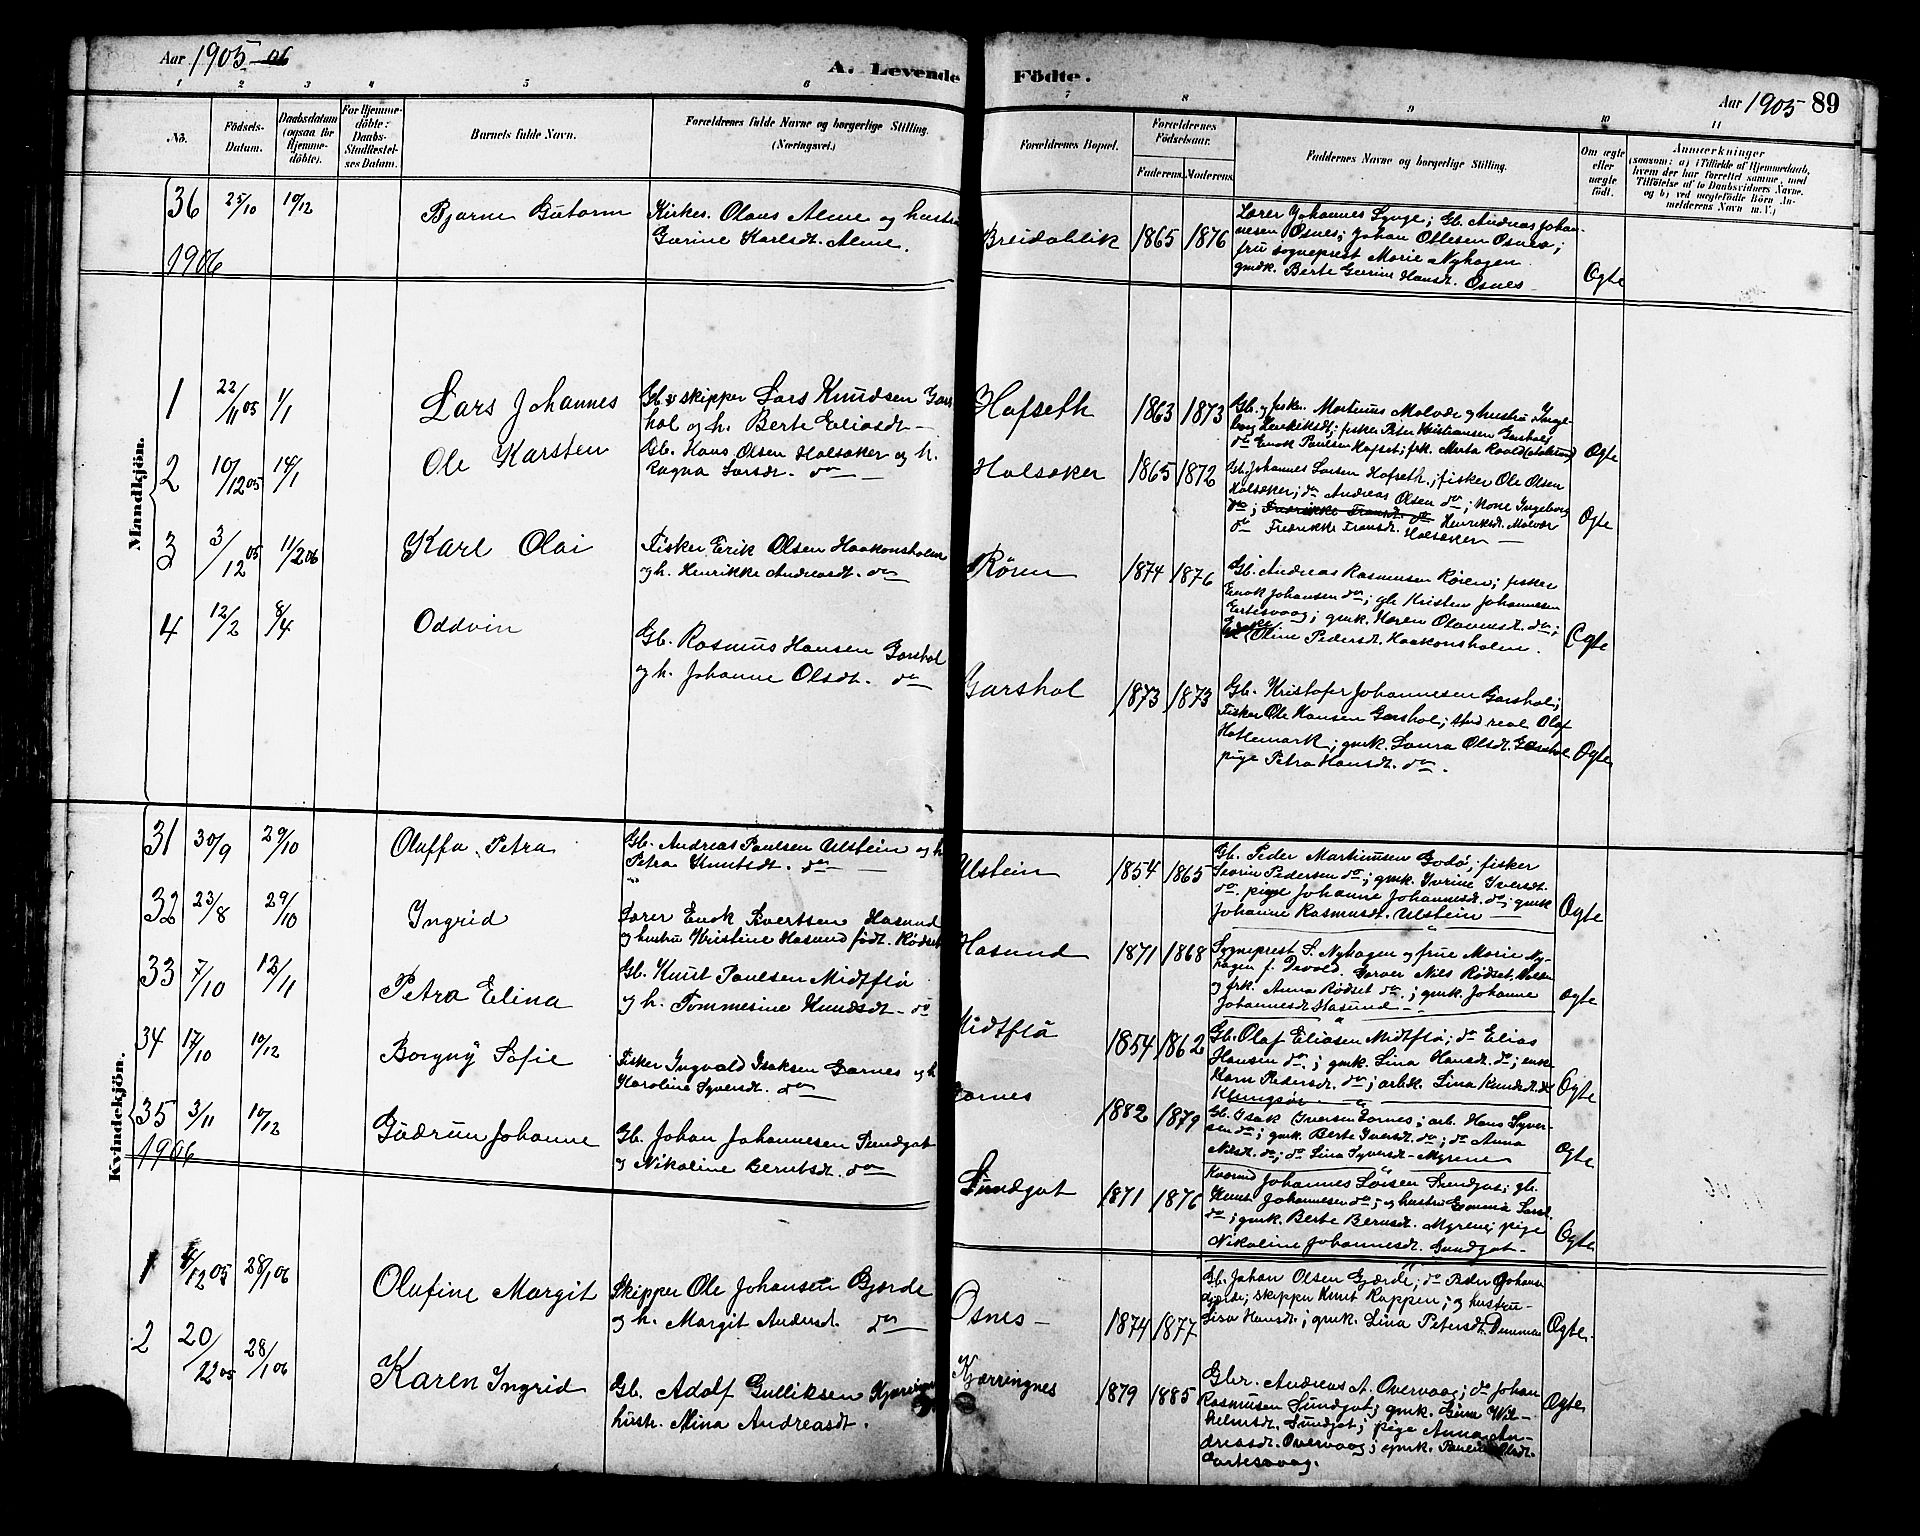 Aar 1905-06
A. Levende Födte.
Aar 1905 89
1 2 3 4 5 6 7 8 9 10 11
No.
Födsels-Datum.
Daabsdatum (ogsaa for Hjemme-döbte).
For Hjemme-döbte: Daabs-Stadfæstel-ses Datum.
Barnets fulde Navn.
Forældrenes fulde Navne og borgerlige Stilling. (Næringsvei.)
Forældrenes Bopæl.
Forældrenes Födselsaar.
Faderens. Moderens.
Faddernes Navne og borgerlige Stilling.
Om ægte eller uægte födt.
Anmærkninger
(saasom: a) i Tilfælde af Hjemmedaab, hvem der har forrettet samme, med Tilföielse af to Daabsvidners Navne, og b) ved uægtefödte Börn An-melderens Navn m. V.)
Mandkjön.
36 25/10 10/12 Bjarne Gutorm Kirkes. Olaus Alme og hustru
Gurine Karlsdt. Alme.
Breidablik 1865 1876
Lærer Johannes Synge; Gb. Andreas Johan-
nesen Osnes; Johan Ottesen Osnes;
fru sogneprest Marie Nyhagen
gmdk. Berte Gurine Hansdt. Osnes-
Ogte
1906
1 22/11 05 1/1 Lars Johannes Gb. & skipper Lars Knudsen Gars
hol og h. Berte Eliasdt-
Hofseth 1863 1873
Gb. og fisker Martinus Molvær og hustru Inge-
borg Henriksdt; fisker Peter Kristiansen Garshol;
do Enok Paulsen Hofset; frk. Marta
Ogte
2 10/12 05 14/1 Ole Karsten Gb. Hans Olsen Holsøker og h.
Ragna Larsdt. do
Holsøker 1865 1872
Gb. Johannes Larsen Hofseth; fisker Ole Olsen
Holsøker; do Andreas Olsen do; Kone Ingeborg
do; Fredrikke Fransdt. do Henriksdt. Molvær
do Fredrikke Fransdt. Holsøker-
Ogte
3 3/12 05 11/2 06 Karl Olai Fisker Erik Olsen Haakonsholm
og h. Henrikke Andreasdt. do
Røren 1874 1876
Gb. Andreas Rasmusen Røren; fisker
Enok Johansen do; gb Kristen Johannesen
Eartesvaag; gmk. Karen Olavusdt. do;
Enke Oline Pedersdt. Haakonsholm.
Ogte
4 12/2 8/4 Oddvin Gb. Rasmus Hansen Garshol
og h. Johanne Olsdt. do
Garshol 1873 1873
Gb. Kristofer Johannesen Garshol;
Fisker Ole Hansen Garshol; stud real Olaf
Hatlemark; gmk. Laura Olsdt. Garshol
pige Petra Hansdt. do.
Ogte
Kvindekjön.
31 30/9 29/10 Oluffa Petra Gb. Andreas Paulsen Ulstein og h
Petra Knutsdt. do
Ulstein 1854 1865
Gb. Peder Martinusen Godø; fisker
Severin Pedersen do; gmk. Ivrine Iversdt.
do. pige Johanne Johannesdt. do; gmk
Johanne Rasmusdt. Ulstein
Ogte
32 23/8 29/10 Ingrid Lærer Enok Sivertsen Hasund
og hustru Kristine Hasund født. Rødset
Hasund 1871 1868
Sogneprest S. Nyhagen og frue Marie Ny-
hagen f. Devold. Garver Nils Rødset,
og frk. Anna Rødset do.; gmk. Johanne
Johannesdt Hasund-
Ogte
33 7/10 12/11 Petra Elina Gb. Knut Paulsen Midtflø
og h. Tommesine Knudsdt - do
Midtflø 1854 1862
Gb. Olaf Eliasen Midtflø; do Elias
Hansen do.; gmk. Lina Hansdt. do; enke
Karn Pedersdt. do; arbdk. Lina Knudsdt.
Klungsør.
Ogte
34 17/10 10/12 Borgny Sofie Fisker Ingvald Isaksen Garnes og h
Karoline Syversdt. do
Garnes 1882 1879
Gb. Isak Iversen Garnes; arb. Hans Syver-
sen do; gmk. Berte Iversdt. do; do Anna
Nilsdt. do; do Lina Syversdt - Myrene
Ogte
35 3/11 10/12 Gudrun Johanne Gb. Johan Johannesen Sundgot
og Nikoline Berntsdt. do
Sundgot 1871 1876
Kaarmd Johannes Larsen Sundgot; gb.
Knut Johannesen do; og hustru Gomma Larsd.
do; gmk. Berte Berntsdt. Myrene; pige
Nikoline Johannesdt. Sundgot-
Ogte
1906
1 4/12 05 28/1 06 Olufine Margit Skipper Ole Johansen Gjørde
og h. Margit Andersdt. do
Osnes- 1874 1877
Gb. Johan Olsen Gjærde; do Peder Johans
Gjærde; skipper Knut Koppen; og hustru
Lisa Hansdt.; gmk. Lina Petersdt. Dimma
Ogte.
2 20/12 05 28/1 06 Karen Ingrid Gb. Adolf Gulliksen Kjærringnes
hustr. Mina Andreasdt.
Kjærringnes 1879 1885
Gbr. Andreas A. Overvaag; do Johan
Rasmusen Sundgot; gmk. Gina Wil-
helmsdt. Sundgot; pige Anna An-
dreasdt. Overvaag; gmk. Pauline Olsdt.
Eartesvaag.
Ogte